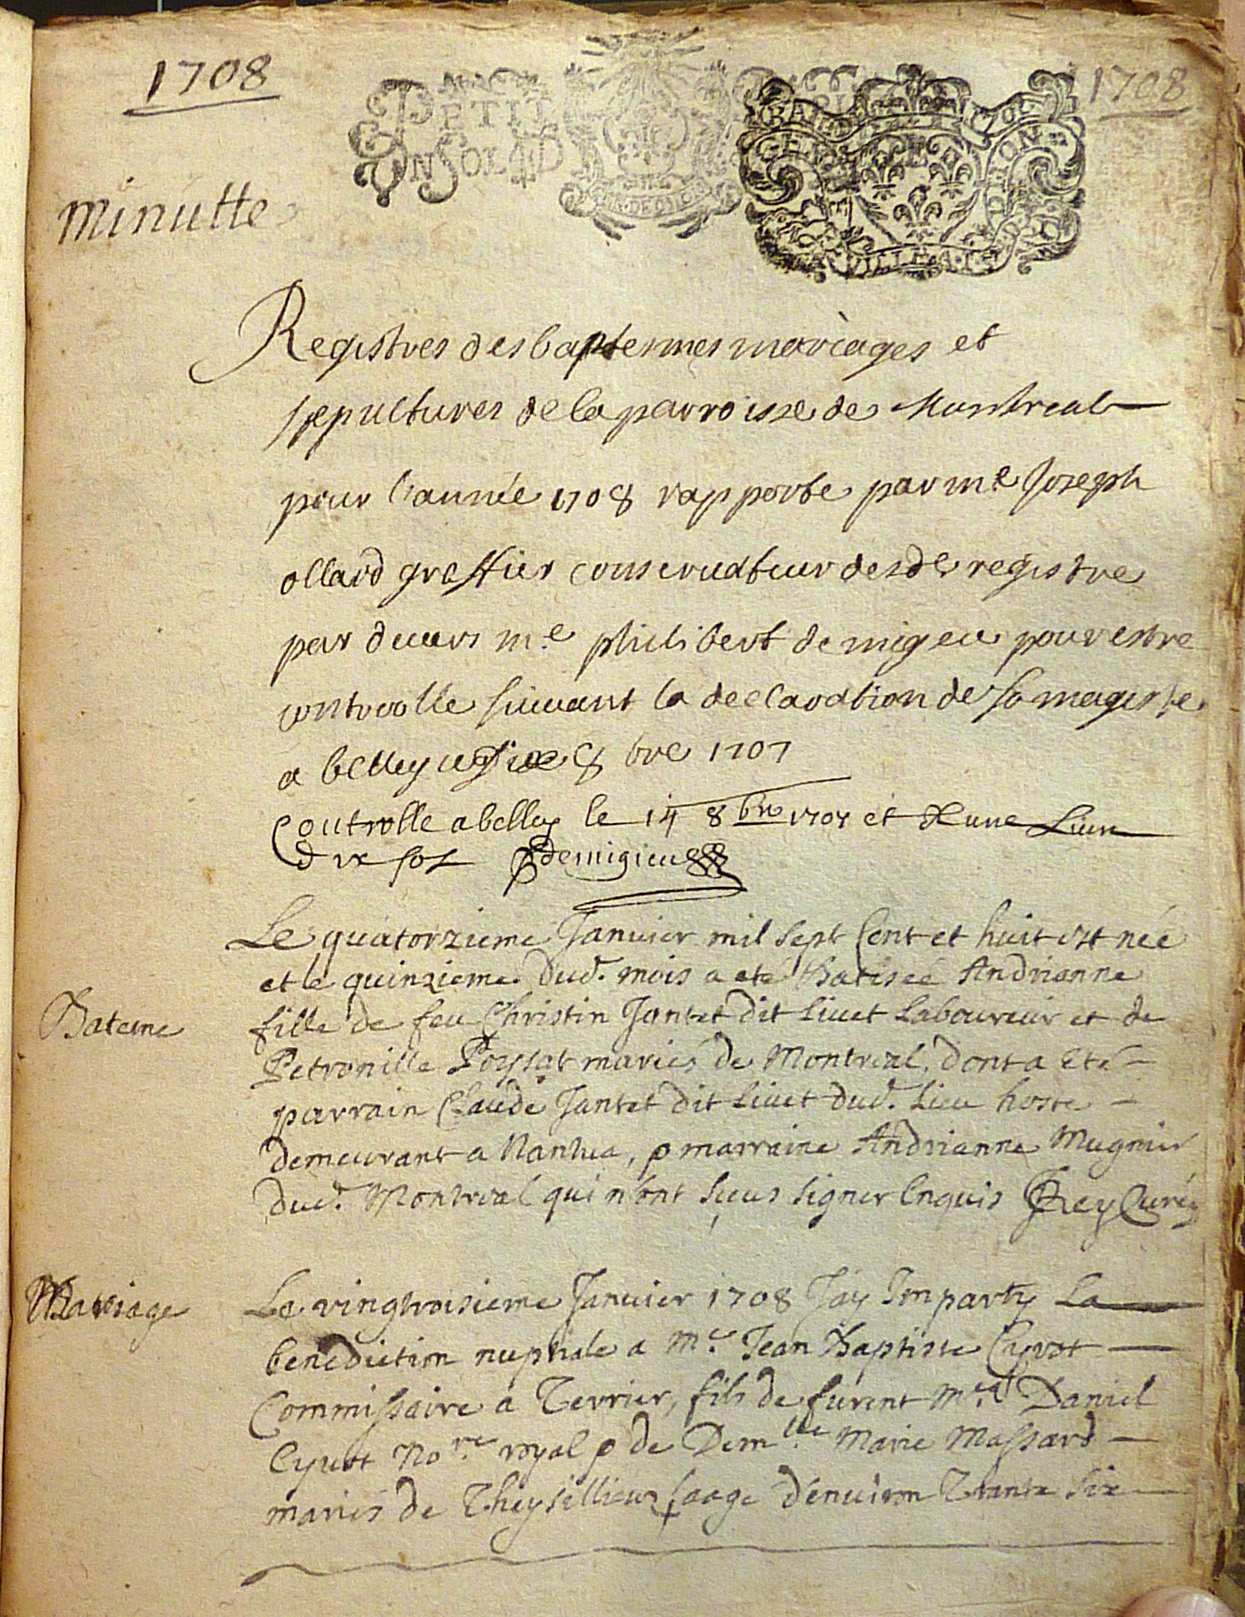 1708
1708
PETIT
UN SOL 4 D
minutte
Registres des baptesmes mariages et
sepultures de la parroisse de Montreal
pour l'année 1708 rapporte par me Joseph
ollard greffier conservateur desd registre
par devers me philibert de migieu pour estre
controolle suivant la declaration de sa mageste
a belley ce 8bre 1707
Controlle a belley le 14 8bre 1707 et Receu une Livre
dix sols Demigieu
Le quatorzieme Janvier mil sept Cent et huit est née
et le quinzieme dud. mois a eté Batisée Andrianne
Bateme
fille de feu Christin Jantet dit livet Laboureur et de
Petronille Poysat mariés de Montreal, dont a Eté
parrain Claude Jantet dit livet dud. Lieu hoste
demeurant a Nantua, & marraine Andrianne Mugnier
dud. Montreal qui n'ont sçeus signer Enquis Rey Curé
Mariage
Le vingtroisieme Janvier 1708 J'ay Imparty La
benediction nuptiale a Me. Jean Baptiste Cyvot
Commissaire a Terrier, fils de furent Me Daniel
Cyvot Nore. royal & de Demlle. Marie Massard
mariés de Theysillieu aage d'environ Trante Six